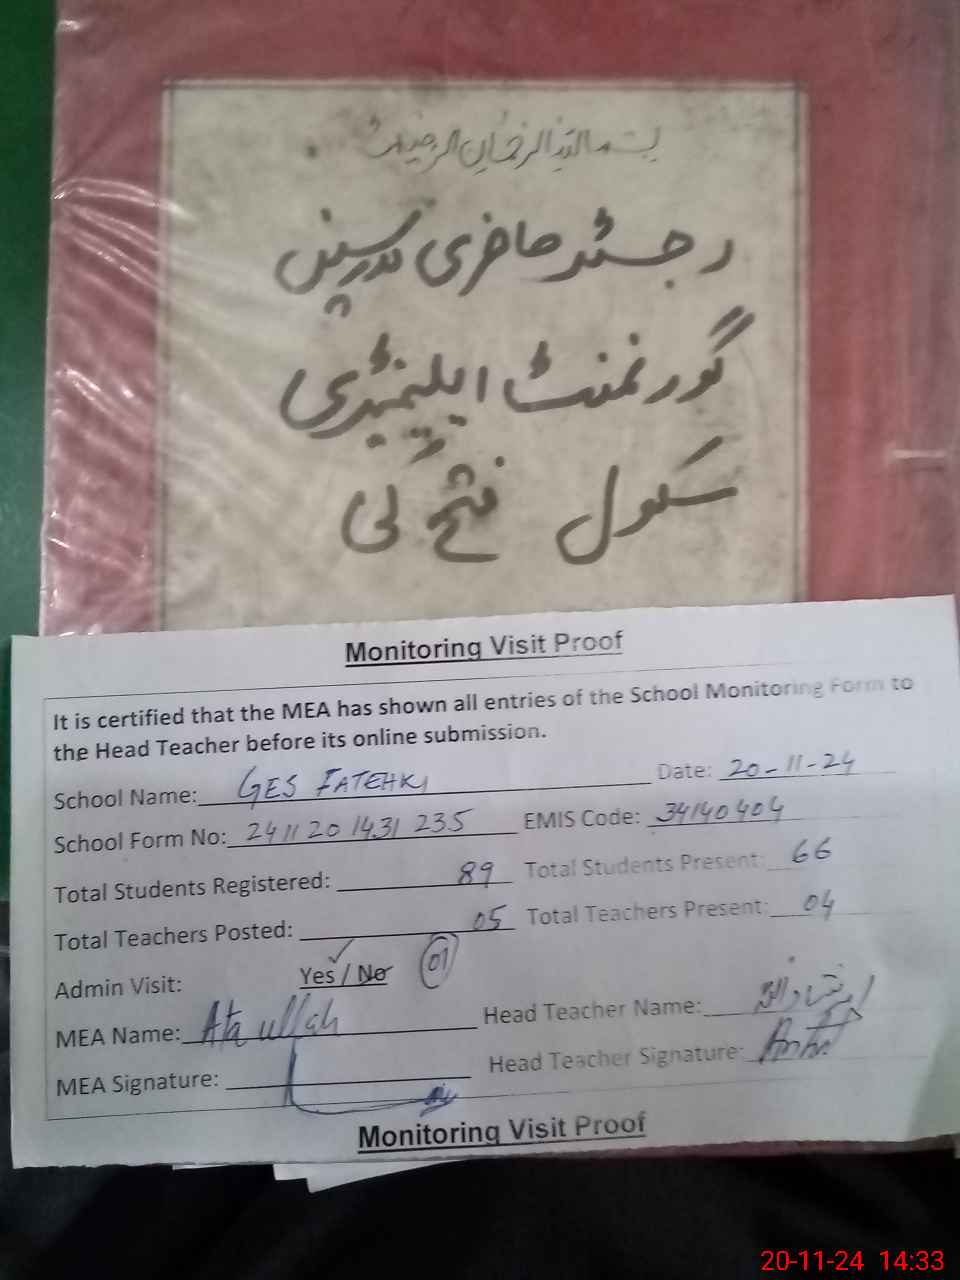 بسم اللہ الرحمٰن الرحیم
رجسٹر حاضری مدرسین
گورنمنٹ ایلیمنٹری
سکول فتح کی
Monitoring Visit Proof
It is certified that the MEA has shown all entries of the School Monitoring Form to
the Head Teacher before its online submission.
School Name: GES FATEHKI Date: 20-11-24
School Form No: 2411201431235 EMIS Code: 34140404
Total Students Registered: 89 Total Students Present: 66
Total Teachers Posted: 05 Total Teachers Present: 04
Admin Visit: Yes / No 01
MEA Name: Ata ullah Head Teacher Name:
MEA Signature: Head Teacher Signature:
Monitoring Visit Proof
20-11-24 14:33